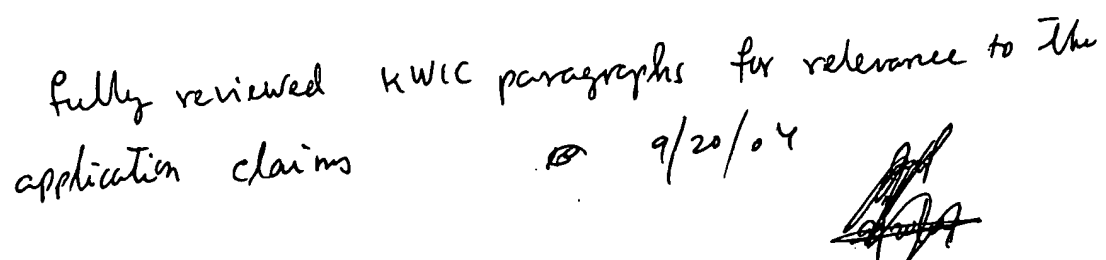 fully reviewed KWIC paragraphs for relevance to the
application claims 9/20/04